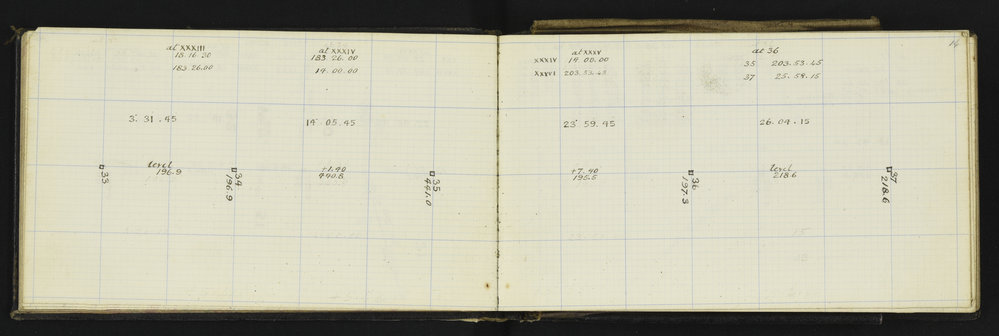 at XXXIII
15.16.30
183.26.00
at XXXIV
183 26.00
14.00.00
3° 31.45
14° 05.45
33
level
196.9
34
196.9
+1.40
440.8
35
441.0
14
at XXXV
XXXIV 14.00.00
XXXVI 203.53.45
at 36
35 203.53.45
37 25.58.15
23° 59.45
26.04.15
+7.40
195.5
36
197.3
level
218.6
37
218.6